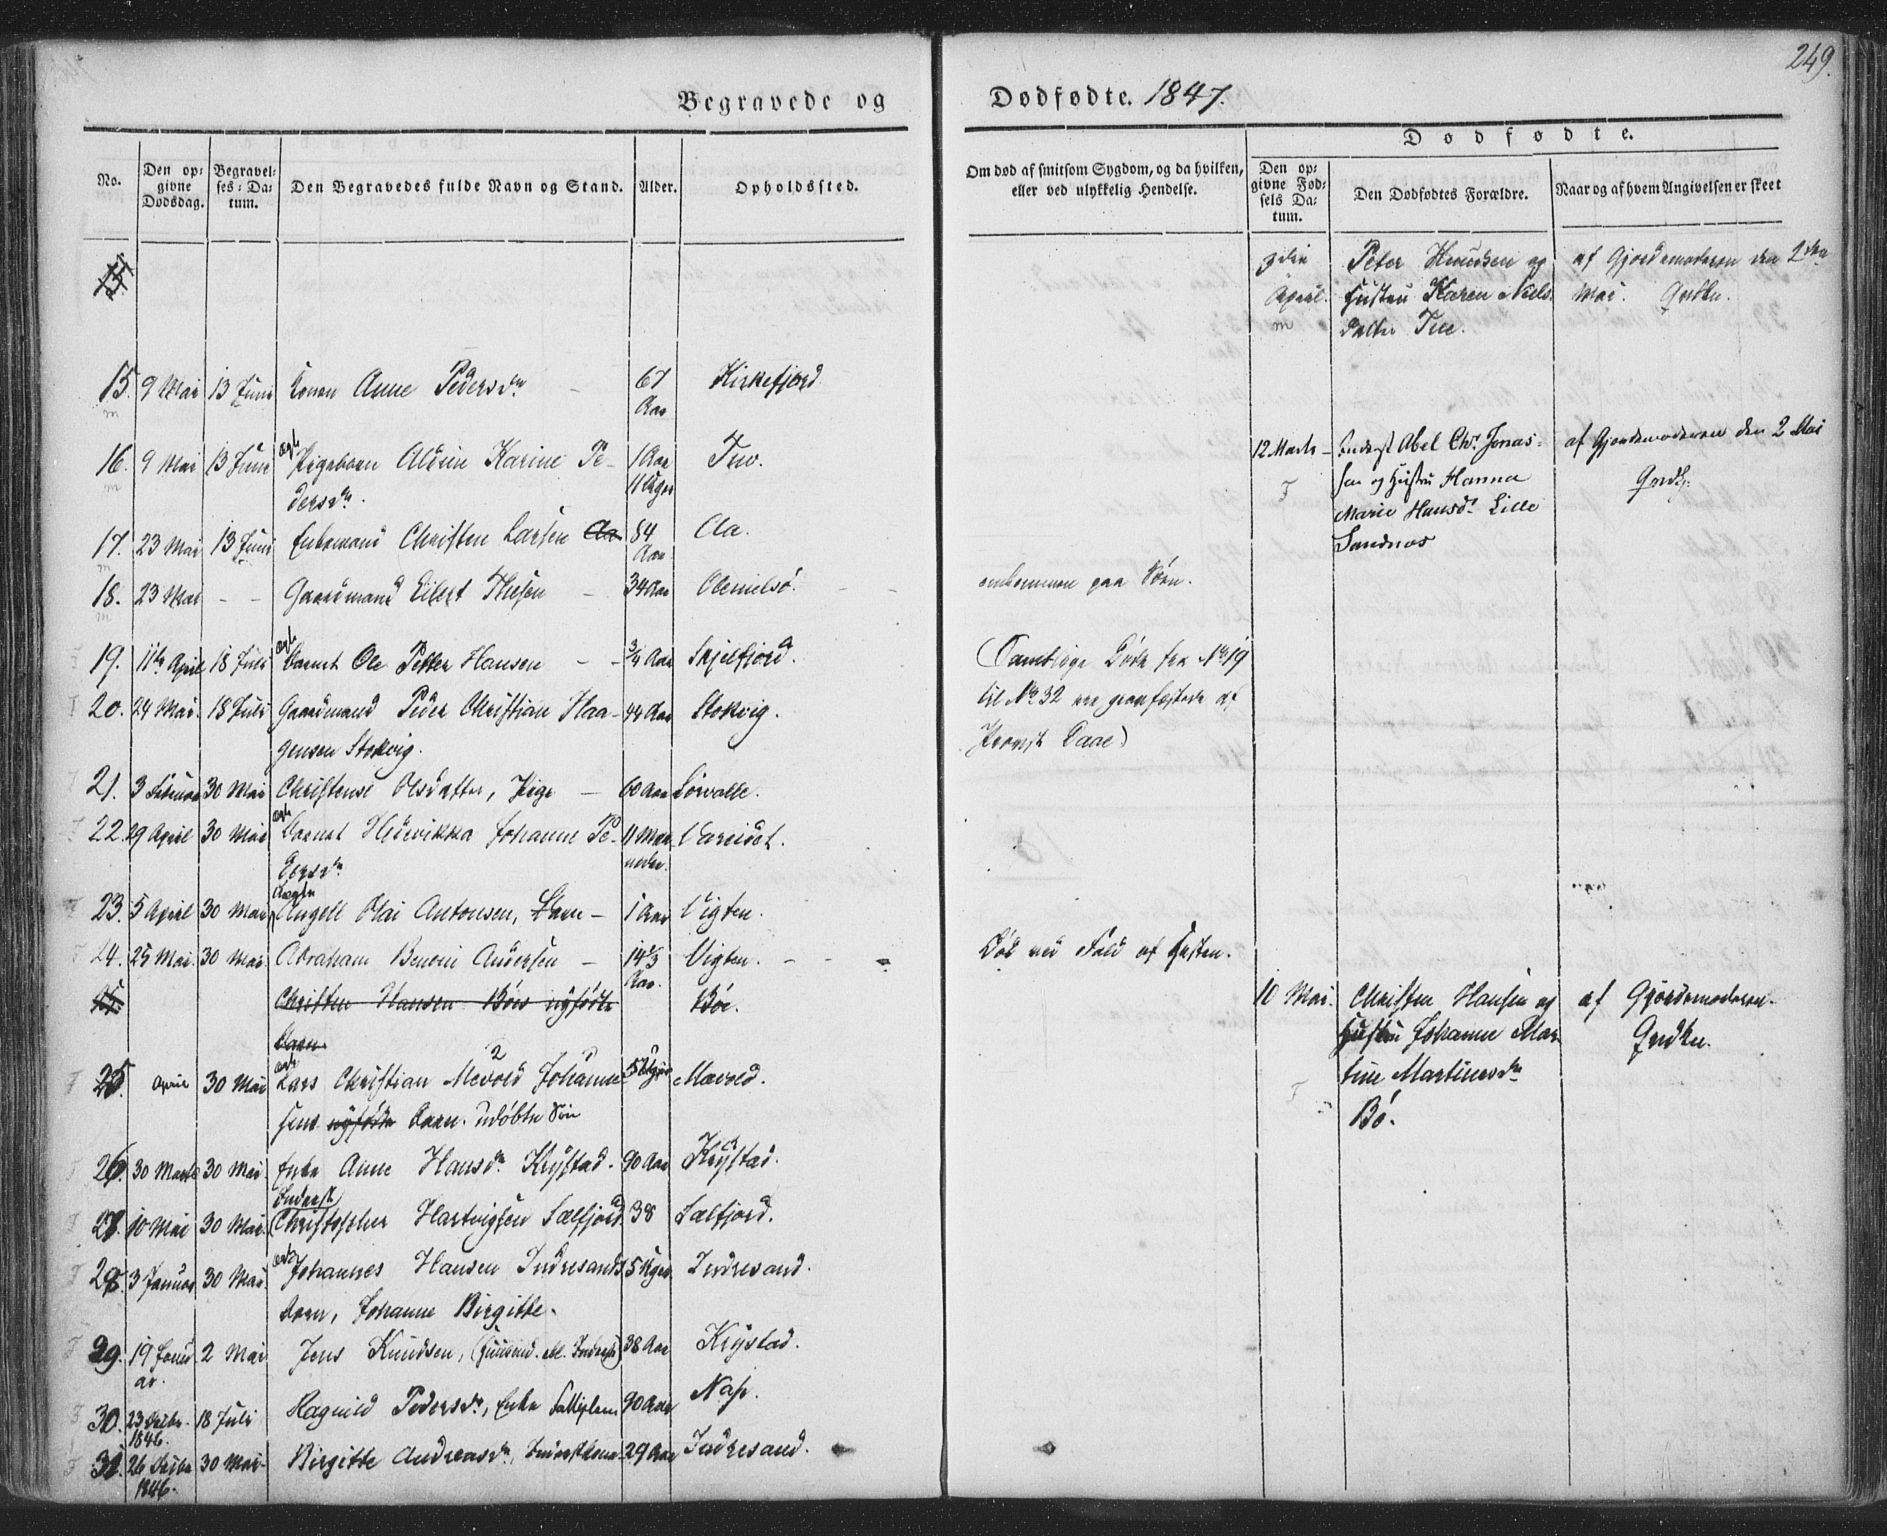 249.
Begravede og Dødfødte. 1847.
Dødfødte.
No.
Den opgivne Dødsdag.
Begravelses-Datum.
Den Begravedes fulde Navn og Stand.
Alder.
Opholdssted.
Om død af smitsom Sygdom, og da hvilken, eller ved ulykkelig Hendelse.
Den opgivne Fødsels Datum.
Den Dødfødtes Forældre.
Naar og af hvem Angivelsen er skeet
April. Peter Knudsen og af Gjordemoderen den 2den
m Hustru Karen Niels Mai.
datter Tue.
15. 9 Mai 13 Juni Konen Anne Pedersdr 67 Aar Kirkefjord
16. 9 Mai 13 Juni ægte Pigebarn Karine Pe- 1 Aar 11 Uger
dersdr.
12 Marts Inderst Abel Chr. Jonas- af Gjordemoderen den 2 Mai
F sen og Hustru Hanna
Marie Hansdr Lille
Sandnæs
17. 23 Mai 13 Juni Enkemand Christen Larsen 84 Aar Aa.
18. 23 Mai - - Gaardmand Eilert - 34 Aar omkommen paa Søen.
19. 11te April 18 Juli ægte Barnet Ole Petter Hansen - - 3/4 Aar Skjelfjord. (Samtlige Døde fra No 19
20. 24 Mai. 18 Juli Gaardmand Peder Christian Haa- 44 Aar Stokvig. til No 32 ere græsfæstede af
gensen Stokvig. Provst Daae)
21. 3 Februar 30 Mai Christense Olsdatter, Pige - 60 Aar Sørvolle.
22. 29 April 30 Mai ægte Barnet Hedevikka Johanne Pe- 11 Maa-
dersdr neder.
23. 5 April 30 Mai ægte Angell Olai Antonsen, Barn - 1 Aar Vigten.
24. 25 Mai. 30 Mai Abraham Benoni Andersen - 14 1/3 Aar. Vigten. - - Død ved Fald af Hesten.
Christen Hansen Bøes nyfødte Bøe.
Barn
10 Mai. Christen Hansen og af Gjordemoderen.
Hustru Johanne Mar-
F tine Martinusdr
Bø.
25. April 30 Mai Lars Christian Mevold Johanne- 5 Uger Mævold.
sens nyfødte Barn. udøbte Søn
26. 30 Marts 30 Mai Enke Anne Hansdr Krystad. 90 Aar Krystad.
27. 10 Mai 30 Mai. Inderst Christopher Hartvigsen Sælfjord 38 Sælfjord.
28. 3 Januar 30 Mai. ægte Johannes Hansen Indresands 5 Uger Indresand.
Barn, Johanne Birgitte.
29. 19 Janu- 2 Mai Jens Knudsen, 38 Aar Krystad.
ar.
30. 1846. 18 Juli Ragnild Pedersdr, Enke 90 Aar
31. 26 1846. 30 Mai Birgitte Andreasdr, 29 Aar Indresand.